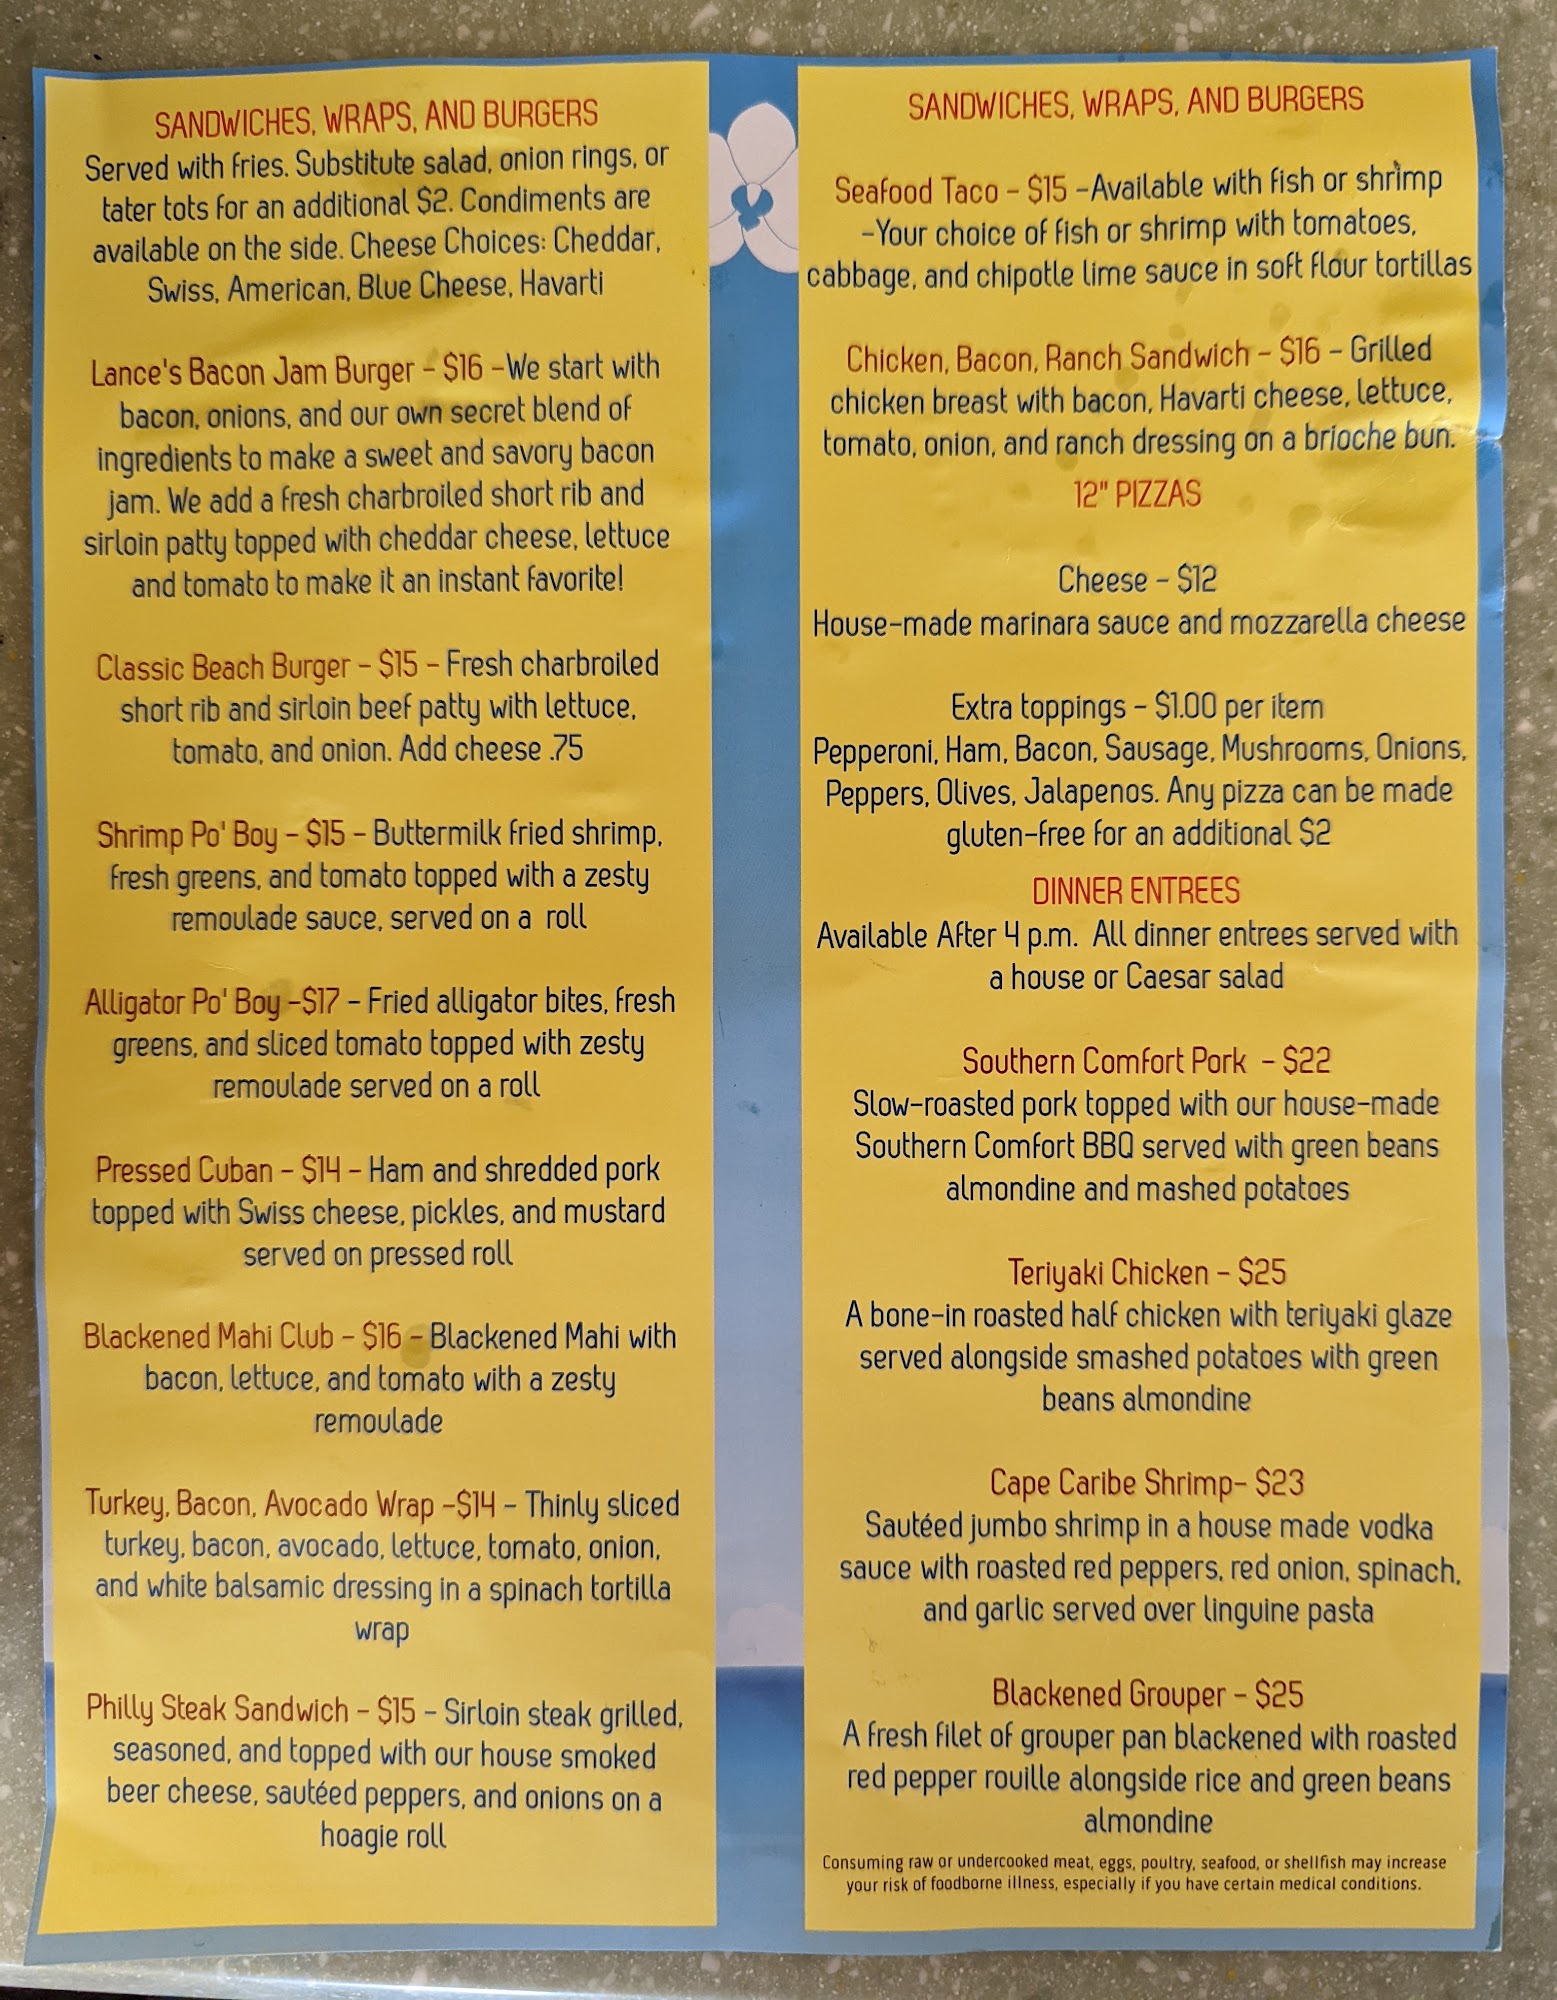 SANDWICHES, WRAPS, AND BURGERS
Served with fries. Substitute salad, onion rings, or
tater tots for an additional $2. Condiments are
available on the side. Cheese Choices: Cheddar,
Swiss, American, Blue Cheese, Havarti
Lance's Bacon Jam Burger - $16 -We start with
bacon, onions, and our own secret blend of
ingredients to make a sweet and savory bacon
jam. We add a fresh charbroiled short rib and
sirloin patty topped with cheddar cheese, lettuce
and tomato to make it an instant favorite!
Classic Beach Burger - $15 - Fresh charbroiled
short rib and sirloin beef patty with lettuce,
tomato, and onion. Add cheese .75
Shrimp Po' Boy - $15 - Buttermilk fried shrimp,
fresh greens, and tomato topped with a zesty
remoulade sauce, served on a roll
Alligator Po' Boy -$17 - Fried alligator bites, fresh
greens, and sliced tomato topped with zesty
remoulade served on a roll
Pressed Cuban - $14 - Ham and shredded pork
topped with Swiss cheese, pickles, and mustard
served on pressed roll
Blackened Mahi Club - $16 - Blackened Mahi with
bacon, lettuce, and tomato with a zesty
remoulade
Turkey, Bacon, Avocado Wrap -$14 - Thinly sliced
turkey, bacon, avocado, lettuce, tomato, onion,
and white balsamic dressing in a spinach tortilla
wrap
Philly Steak Sandwich - $15 - Sirloin steak grilled,
seasoned, and topped with our house smoked
beer cheese, sautéed peppers, and onions on a
hoagie roll
SANDWICHES, WRAPS, AND BURGERS
Seafood Taco - $15 -Available with fish or shrimp
-Your choice of fish or shrimp with tomatoes,
cabbage, and chipotle lime sauce in soft flour tortillas
Chicken, Bacon, Ranch Sandwich - $16 - Grilled
chicken breast with bacon, Havarti cheese, lettuce,
tomato, onion, and ranch dressing on a brioche bun.
12" PIZZAS
Cheese - $12
House-made marinara sauce and mozzarella cheese
Extra toppings - $1.00 per item
Pepperoni, Ham, Bacon, Sausage, Mushrooms, Onions,
Peppers, Olives, Jalapenos. Any pizza can be made
gluten-free for an additional $2
DINNER ENTREES
Available After 4 p.m. All dinner entrees served with
a house or Caesar salad
Southern Comfort Pork - $22
Slow-roasted pork topped with our house-made
Southern Comfort BBQ served with green beans
almondine and mashed potatoes
Teriyaki Chicken - $25
A bone-in roasted half chicken with teriyaki glaze
served alongside smashed potatoes with green
beans almondine
Cape Caribe Shrimp- $23
Sautéed jumbo shrimp in a house made vodka
sauce with roasted red peppers, red onion, spinach,
and garlic served over linguine pasta
Blackened Grouper - $25
A fresh filet of grouper pan blackened with roasted
red pepper rouille alongside rice and green beans
almondine
Consuming raw or undercooked meat, eggs, poultry, seafood, or shellfish may increase
your risk of foodborne illness, especially if you have certain medical conditions.